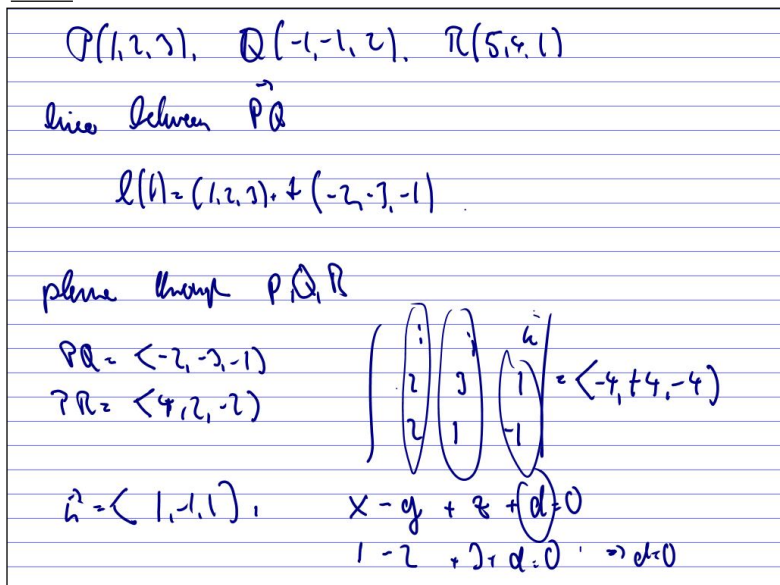 P(1,2,3), Q(-1,-1,2), R(5,4,1)
line between PQ
l(t)=(1,2,3)+t(-2,-3,-1)
plane through P,Q,R
PQ= <-2,-3,-1)
PR= <4,2,-2)
| i j k |
| 2 3 1 | = <-4,+4,-4)
| 2 1 -1 |
n = < 1,-1,1), x - y + z + d = 0
1 - 2 + 3 + d = 0 ⇒ d=0